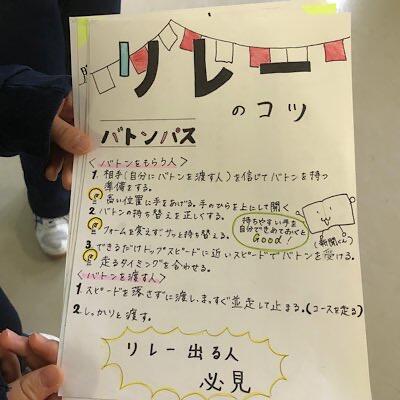 リレー
のコツ
バトンパス
<バトンをもらう人>
1. 相手(自分にバトンを渡す人)を信じてバトンを持つ
準備をする。
高い位置に手をあげる。手のひらを上にして開く
2. バトンの持ち替えを正しくする。
フォームを変えずサッと持ち替える。
持ちやすい手を
自分できめておくと
Good!
(新聞くん)
3. できるだけトップスピードに近いスピードでバトンを受ける。
走るタイミングを合わせる。
<バトンを渡す人>
1. スピードを落さずに渡し、まっすぐ並走して止まる。(コースを走る)
2. しっかりと渡す。
リレー出る人
必見